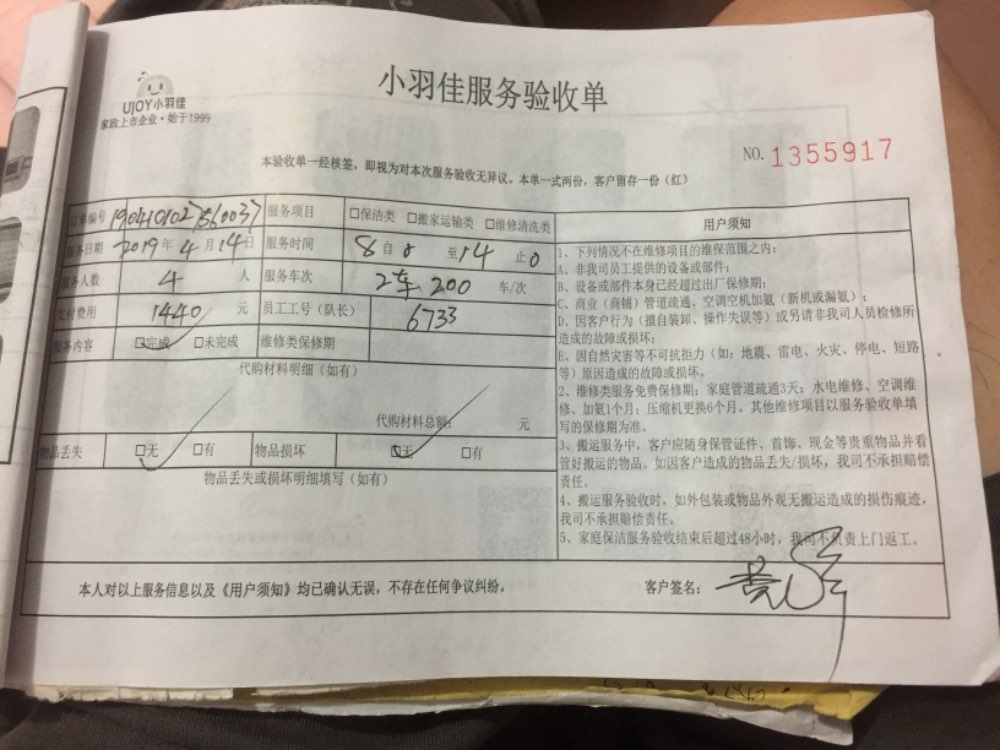 小羽佳服务验收单
UJOY小羽佳
家政上市企业·始于1999
NO. 1355917
本验收单一经核签，即视为对本次服务验收无异议。本单一式两份，客户留存一份（红）
订单编号 服务项目 □保洁类 □搬家运输类 □维修清洗类
服务日期 2019年4月14日 服务时间 8自0至14止0
服务人数 4 人 服务车次 2车 200 车/次
支付费用 1440 元 员工工号（队长） 6733
服务内容 □完成 □未完成 维修类保修期
代购材料明细（如有）
代购材料总额： 元
物品丢失 □无 □有 物品损坏 □无 □有
物品丢失或损坏明细填写（如有）
用户须知
1、下列情况不在维修项目的维保范围之内：
A、非我司员工提供的设备或部件；
B、设备或部件本身已经超过出厂保修期；
C、商业（商铺）管道疏通、空调空机加氨（新机或漏氨）；
D、因客户行为（擅自装卸、操作失误等）或另请非我司人员检修所
造成的故障或损坏；
E、因自然灾害等不可抗拒力（如：地震、雷电、火灾、停电、短路
等）原因造成的故障或损坏。
2、维修类服务免费保修期：家庭管道疏通3天；水电维修、空调维
修、加氨1个月；压缩机更换6个月。其他维修项目以服务验收单填
写的保修期为准。
3、搬运服务中，客户应随身保管证件、首饰、现金等贵重物品并看
管好搬运的物品。如因客户造成的物品丢失/损坏，我司不承担赔偿
责任。
4、搬运服务验收时，如外包装或物品外观无搬运造成的损伤痕迹，
我司不承担赔偿责任。
5、家庭保洁服务验收结束后超过48小时，我司不负责上门返工。
本人对以上服务信息以及《用户须知》均已确认无误，不存在任何争议纠纷。
客户签名：